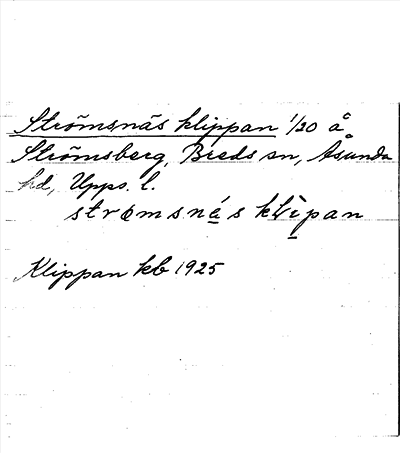 Strömsnäs klippan 1/20 å
Strömsberg, Breds sn, Åsunda
hd, Upps. l.
strømsnás klìpan
Klippan kb 1925